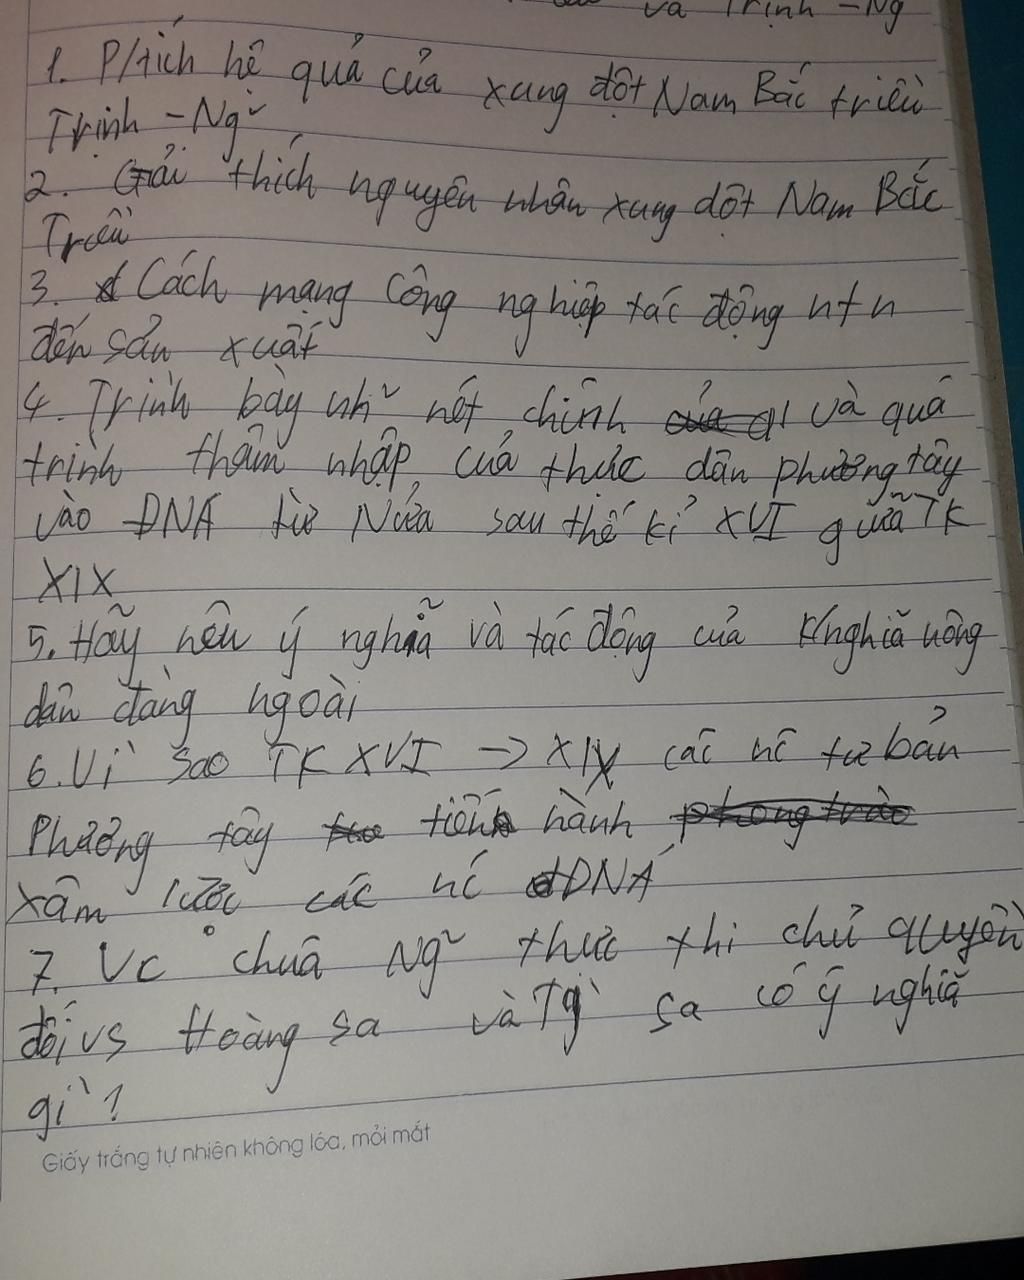 và Trịnh - Ng
1. P/tích hệ quả của xung đột Nam Bắc triều
Trịnh - Ng~
2. Giải thích nguyên nhân xung dột Nam Bắc
Triều
3. Cách mạng Công nghiệp tác động ntn
đến sản xuất
4. Trình bày nh~ nét chính và quá
trình thâm nhập của thực dân phương tây
vào ĐNA từ Nửa sau thế kỉ XVI giữa TK
XIX
5. Hãy nêu ý nghĩa và tác động của K/nghĩa nông
dân đàng ngoài
6. Vì sao TK XVI -> XIX các nc tư bản
Phương tây tiến hành
xâm lược các nc ĐNA
7. Vc chúa Ng~ thực thi chủ quyền
đối vs Hoàng sa và Tg` Sa có ý nghĩa
gì?
Giấy trắng tự nhiên không lóa, mỏi mắt